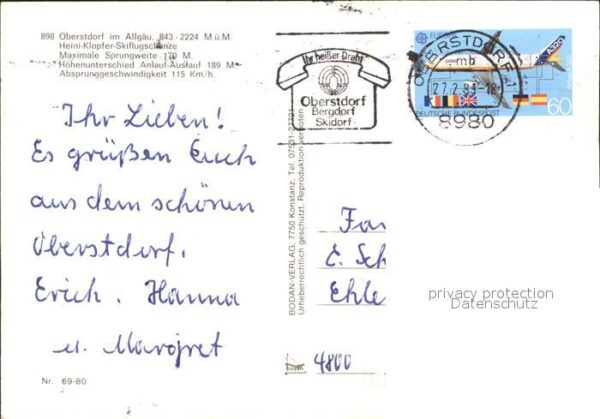 898 Oberstdorf im Allgäu, 843 - 2224 M.ü.M.
Heini-Klopfer-Skiflugschanze
Maximale Sprungweite 170 M
Höhenunterschied Anlauf-Auslauf 189 M
Absprunggeschwindigkeit 115 Km/h.
Ihr heißer Draht
Oberstdorf
Bergdorf
Skidorf
EUROPA
A320
60
DEUTSCHE BUNDESPOST
OBERSTDORF
mb
27.2.89-18
8980
Ihr Lieben!
Es grüßen Euch
aus dem schönen
Oberstdorf,
Erich. Hanna
u. Margret
BODAN-VERLAG, 7750 Konstanz, Tel. 07531-22721
Urheberrechtlich geschützt, Reproduktion verboten
Fam
E. Sch
Ehle
4800
privacy protection
Datenschutz
Nr. 69-80